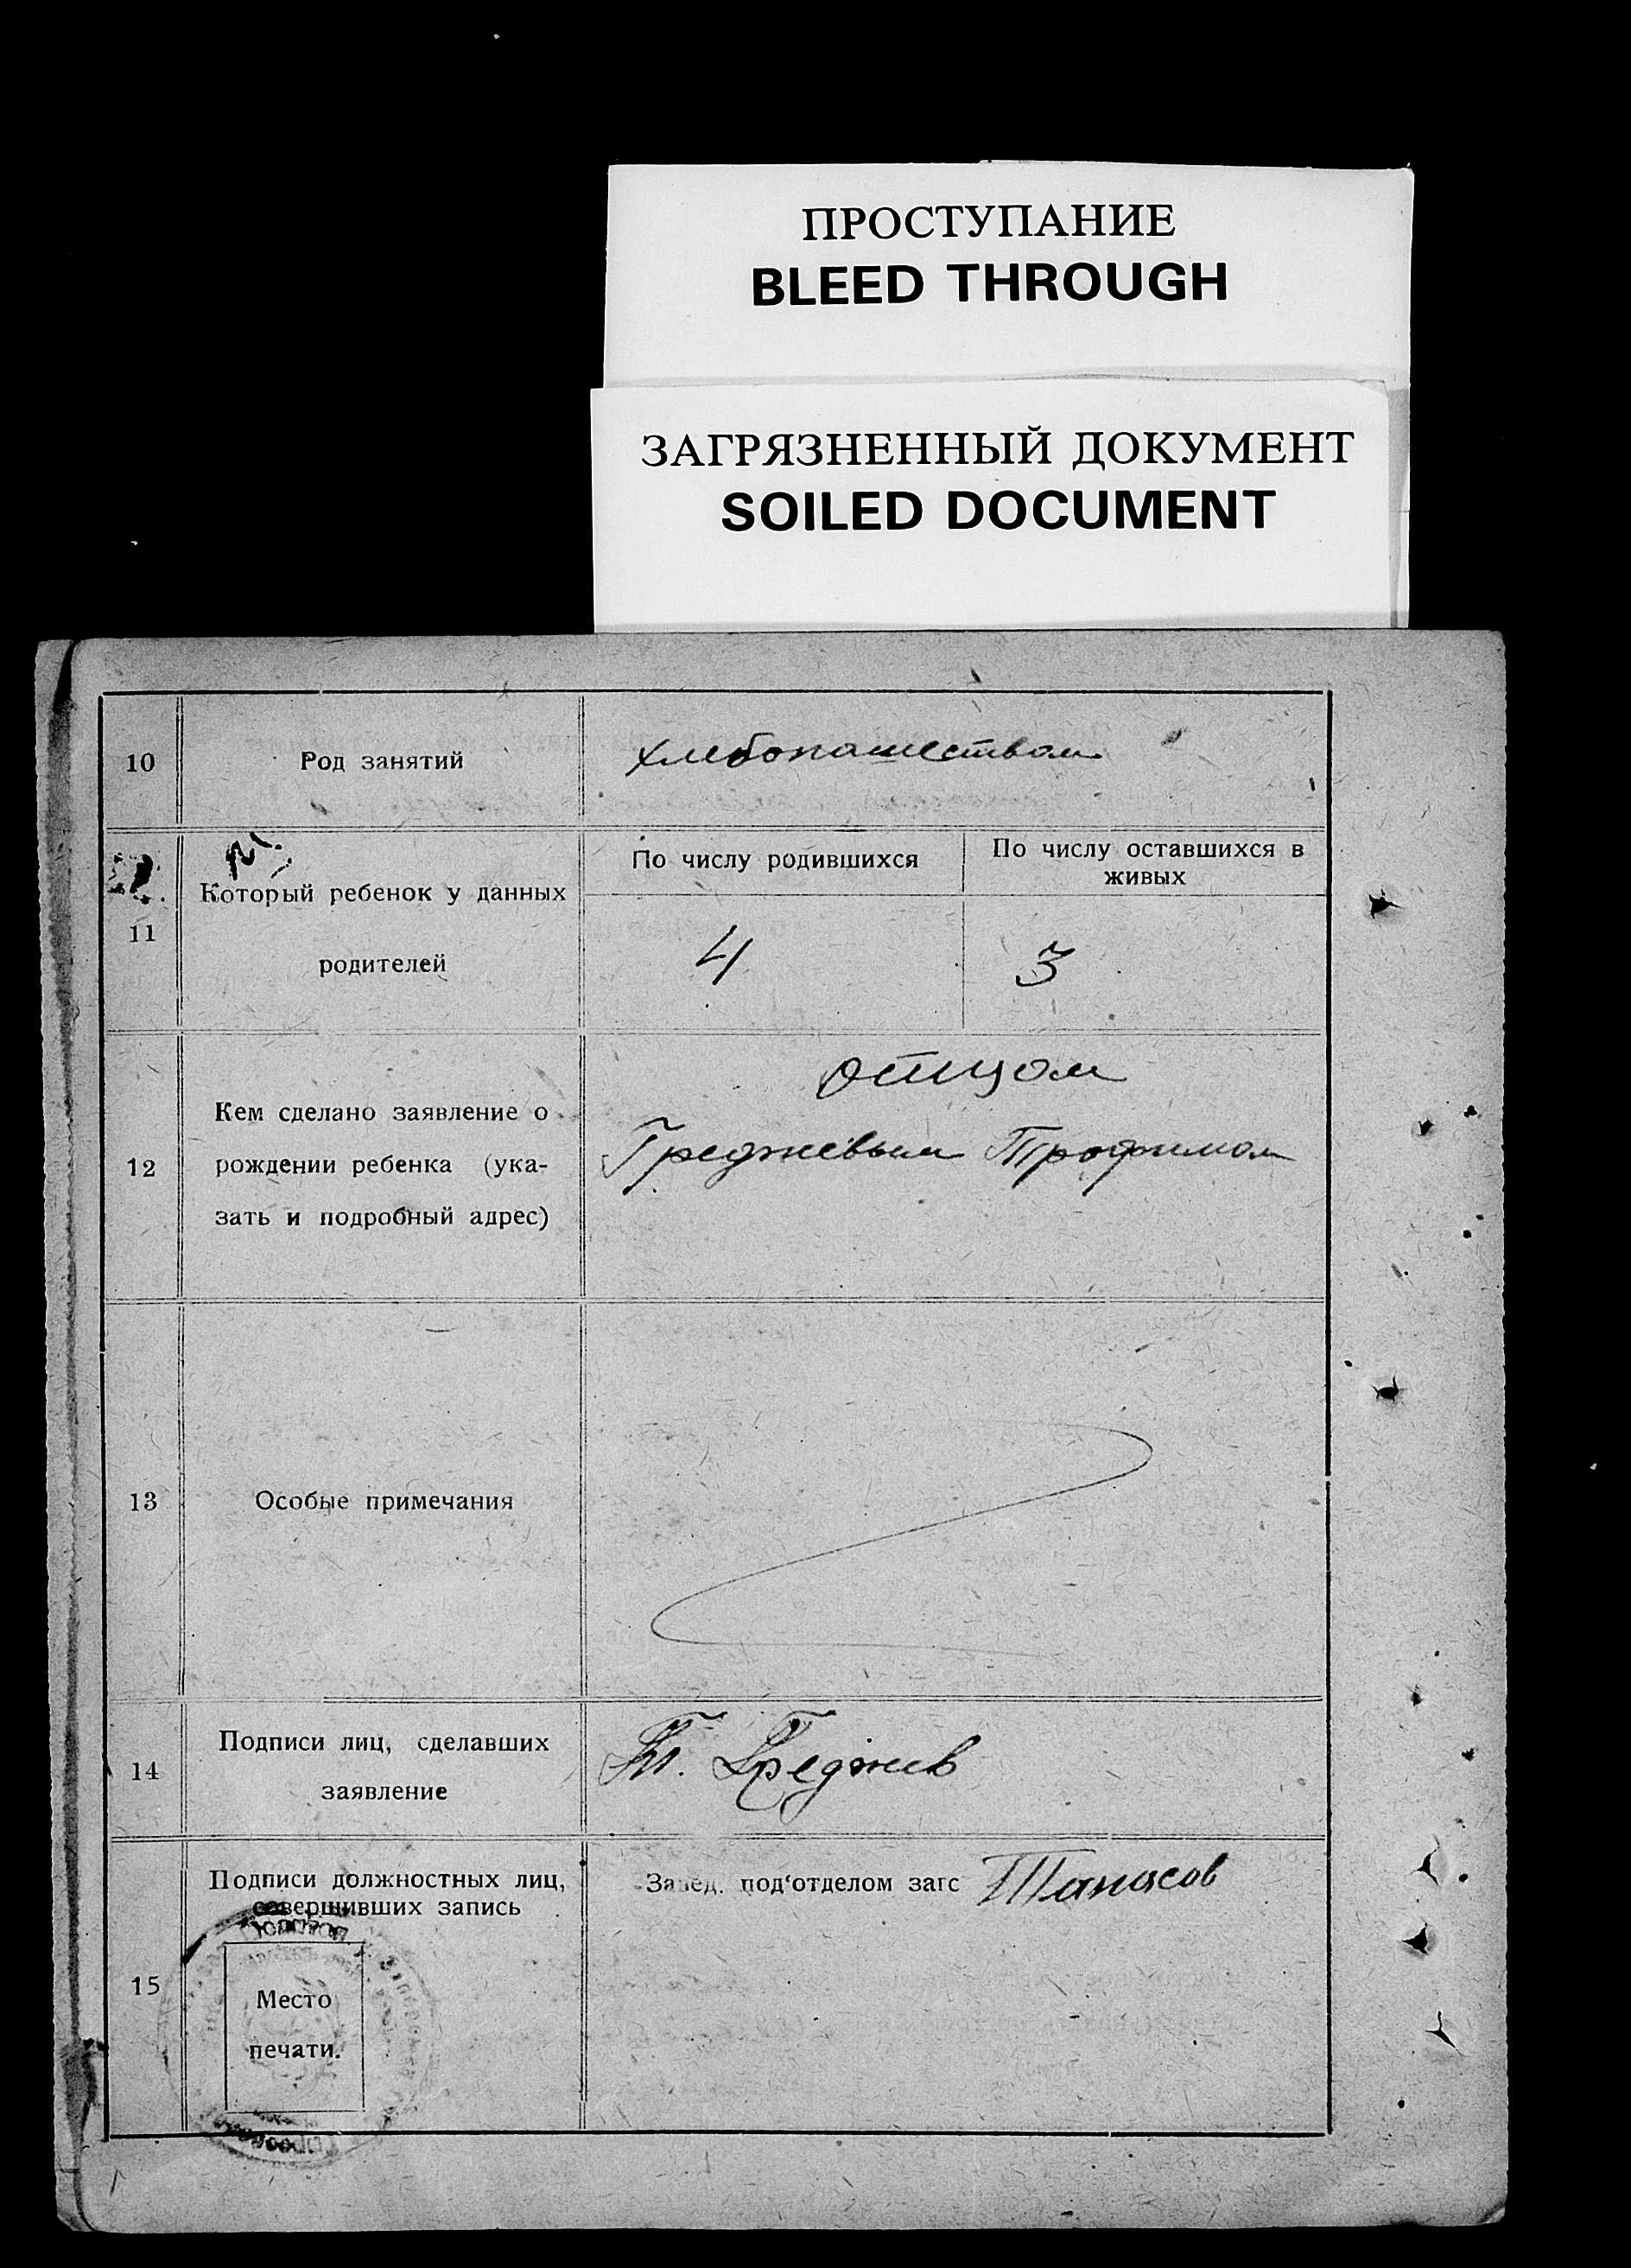 ПРОСТУПАНИЕ
BLEED THROUGH
ЗАГРЯЗНЕННЫЙ ДОКУМЕНТ
SOILED DOCUMENT
10 Род занятий хлебопашеством
11 Который ребенок у данных родителей
По числу родившихся
По числу оставшихся в
живых
4 3
12 Кем сделано заявление о
рождении ребенка (ука-
зать и подробный адрес)
отцом
Греджевым Трофимом
13 Особые примечания
14 Подписи лиц, сделавших
заявление
Т. Греджев
15 Подписи должностных лиц,
совершивших запись
Завед. под‘отделом загс Танасов
Место
печати.